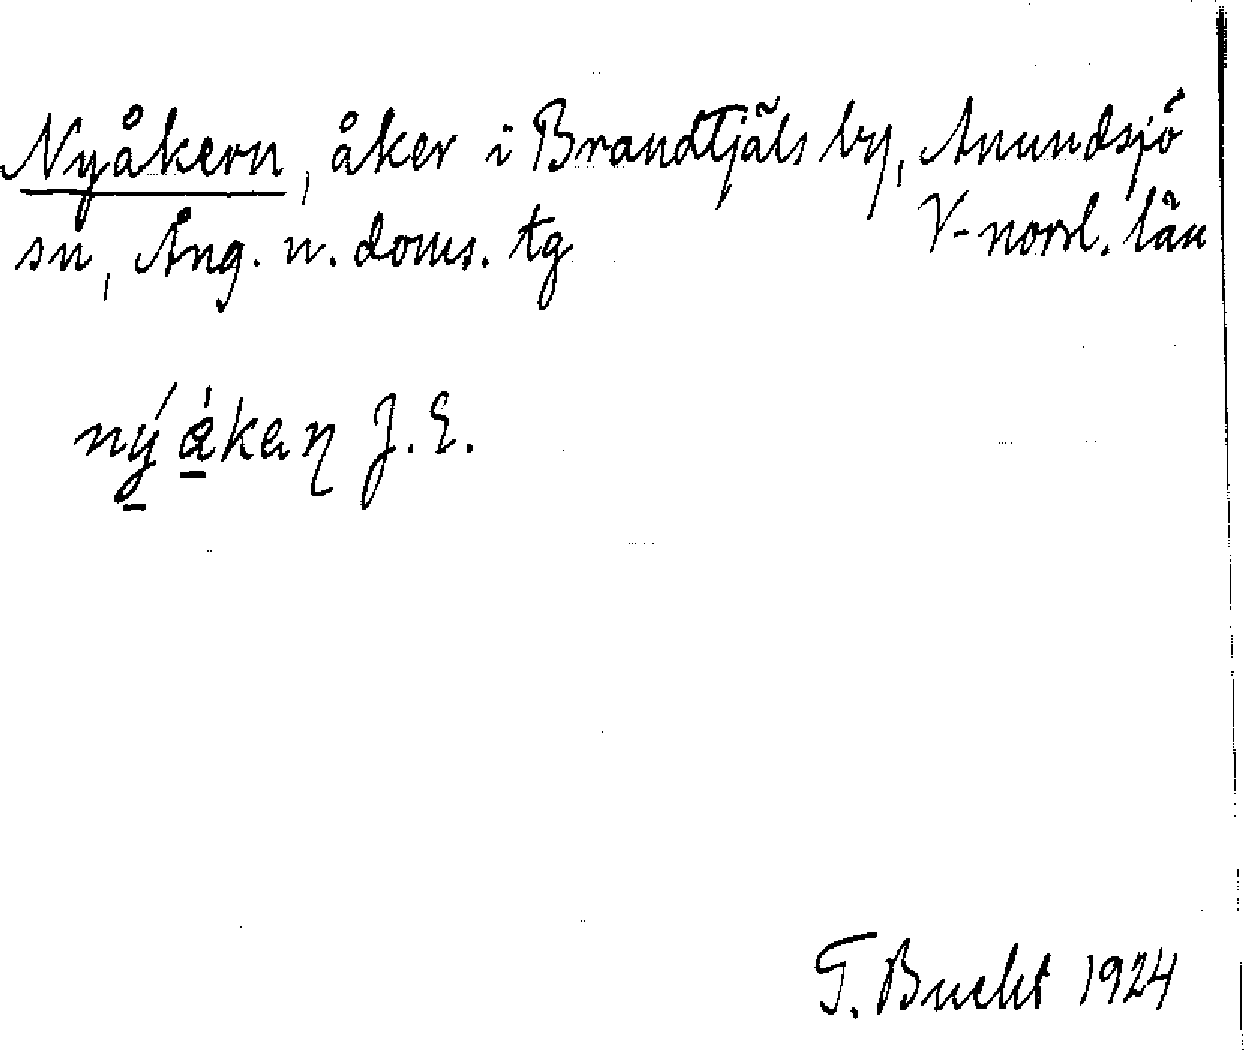 Nyåkern, åker i Brandtjäls by, Anundsjö
sn, Ång. n. doms. tg V-norrl. län
nýákaɳ J. E.
T. Bucht 1924